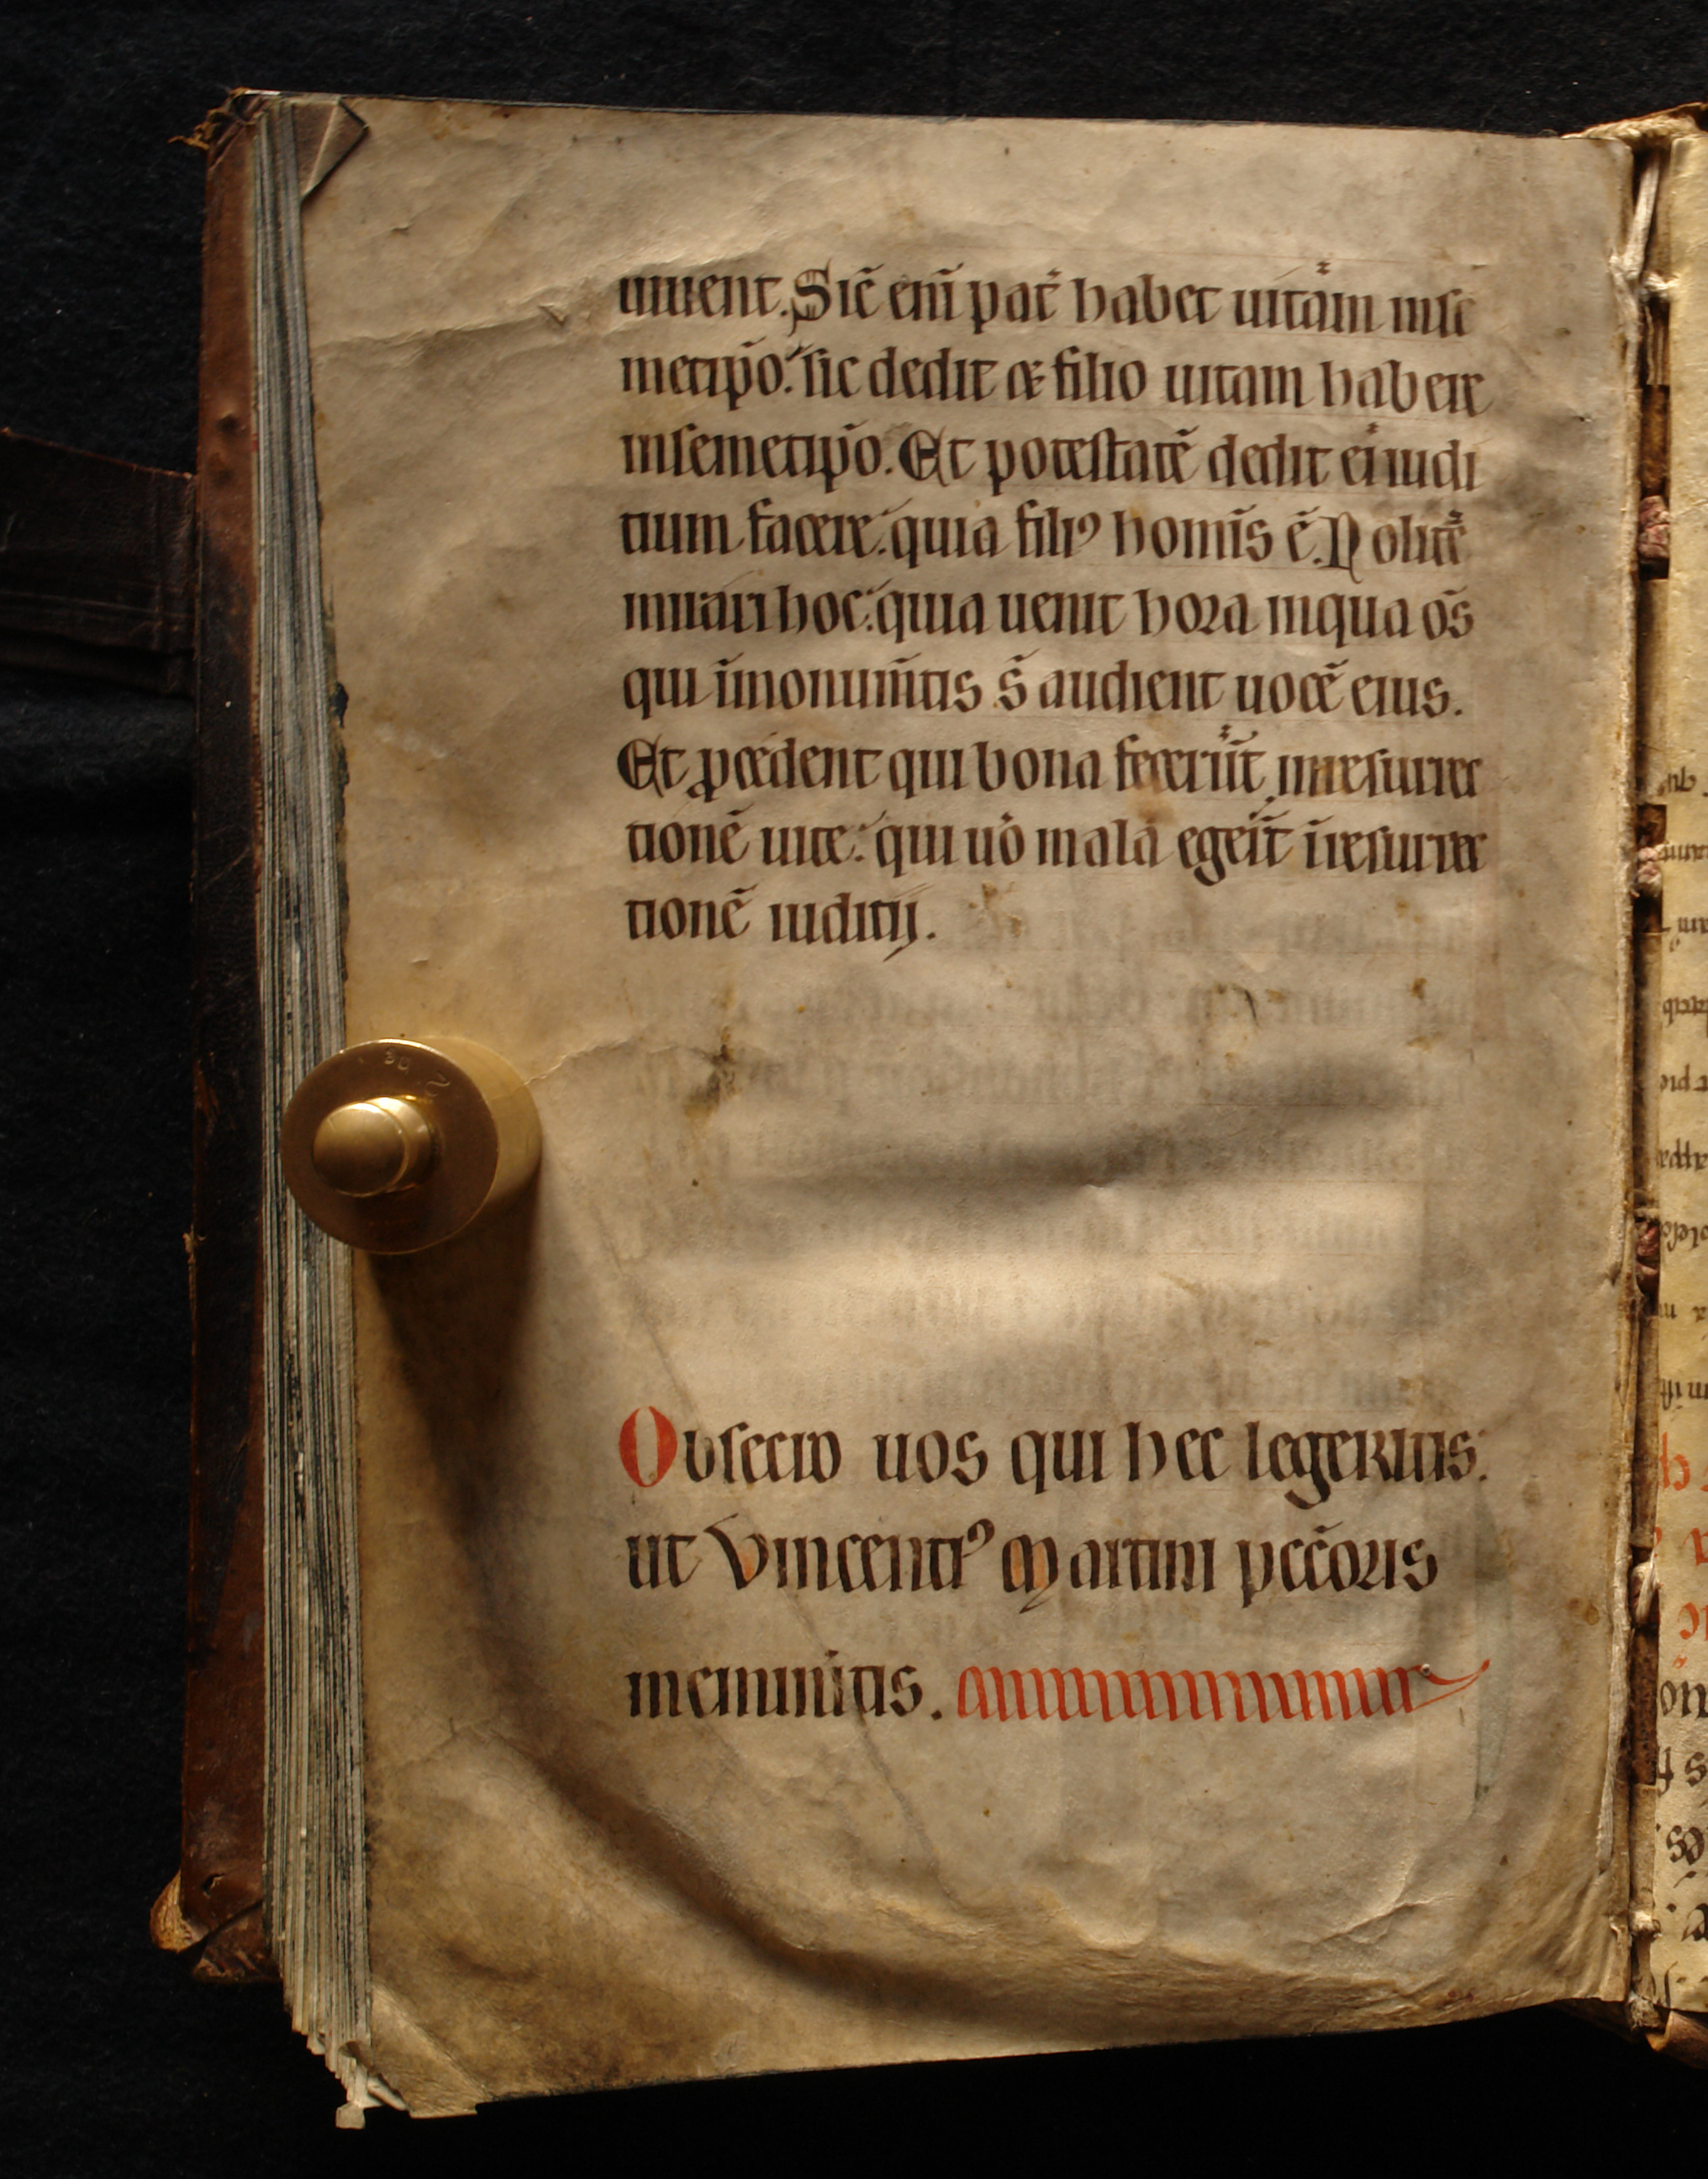 uiuent. Sic̃ eni̅ pat̃ habet uitam inse
metip̅o. sic dedit ⁊ filio uitam habere
insemetip̅o. Et potestatẽ dedit ei iudi
tium facere. quia filiꝰ homi̅s ẽ. Nolite
mirari hoc. quia uenit hora inqua o̅s
qui i̅monum̅tis s̅ audient uocẽ eius.
Et ꝓcedent qui bona fecerũt inresurrec
tionẽ uite. qui uo̅ mala eger̅t i̅resurrec
tionẽ iuditij.
Obsecro uos qui hec legeritis.
ut Vincentiꝰ Martini pccõris
meminitis.